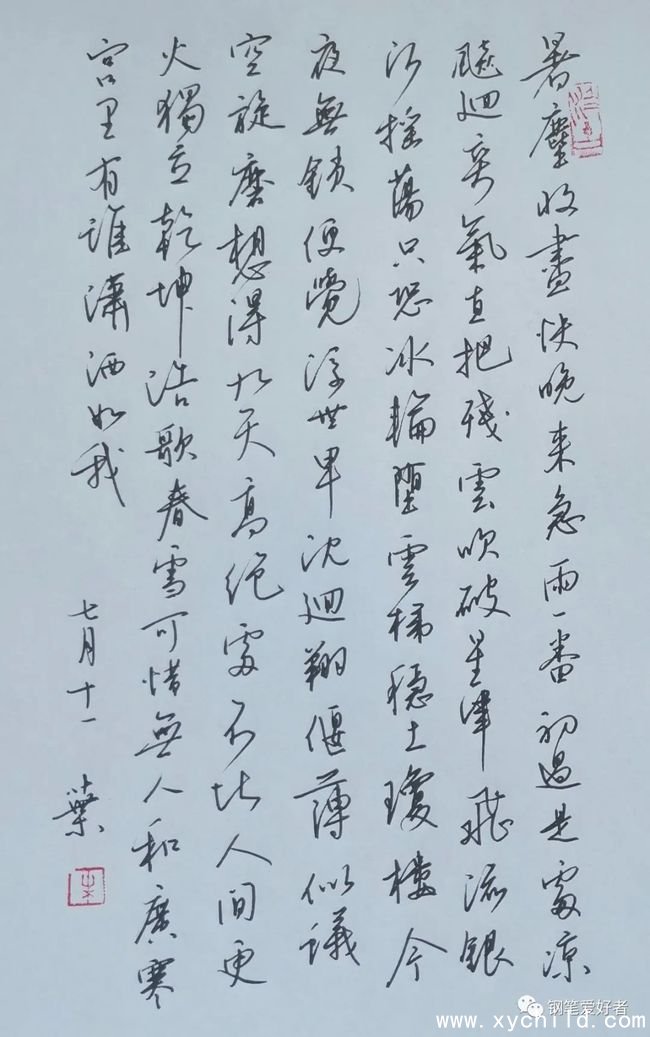 暑塵收盡快晚来急雨一番初過是處凉
飈迴爽氣直把残雲吹破星津飛流銀
河摇蕩只恐冰輪墮雲梯穩上瓊樓今
夜無鎖便覺浮世卑沈迴翔偃薄似議
空旋磨想得九天高绝處不比人間更
火獨立乾坤浩歌春雪可惜無人和廣寒
宫里有誰瀟洒如我
七月十一 葉
钢笔爱好者
www.xychild.com